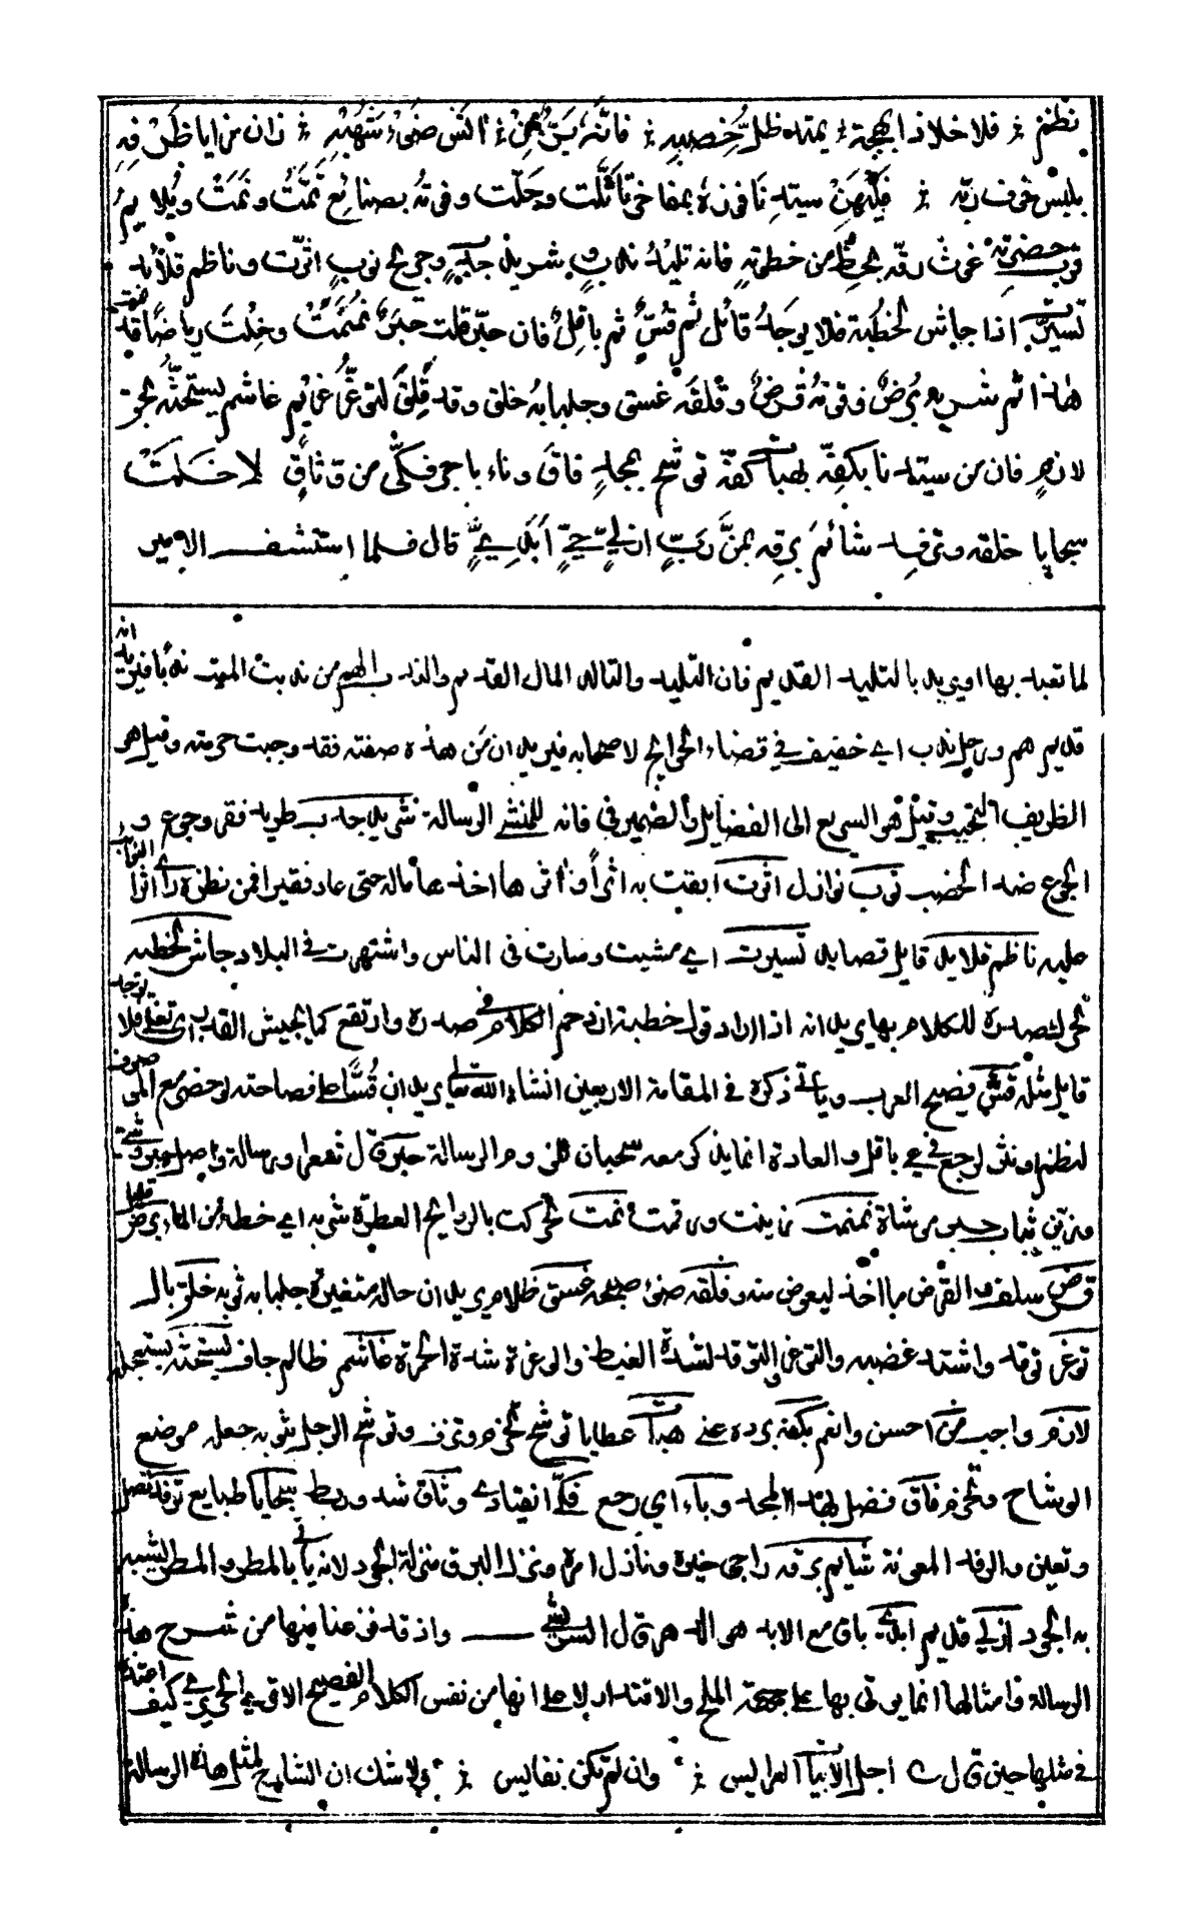 نظمٌ ؛ فلا خلا ذا بهجةٍ ؛ يمتد ظلُّ خصبهِ ؛ فانّه بَرٌّ بمن ؛ آنس ضوءَ شهبه ؛ زان مزايا ظرفه
بلبس خوف ربّه ؛ فليهن سيدنا فوزه بمفاخر تاثّلت وجلّت وفوته بصنائع تمّت ونمت ويلايم
قرب حضرته غوث رقّه بحظّ من خطوته فانه تليدُ ندبٍ شريد جدبٍ وجريح نوبٍ اثرت وناظم قلائد
تسيرت اذا جاش لخطبة فلا يوجد قائل ثم قسٌّ ثم باقلٌ فان حبّر قلت حبرٌ نمنمت وخلت رياضًا قد نمت
هذا ثم شربه برض وقوته قرض وفلقه غسق وجلبابه خلق وقد قلق لتوغر غريم غاشم يستحثّه بحق
لازم فان من سيدنا بكفّه بهبات كفّه توشح بمجد فاق وناء باجر فكّي من وثاقٍ لا خلت
سجايا خلقه وترفد شائم برقه بمنّ ربّ ازليّ حيّ ابديّ قال فلما استشف الامير
لما تعبد بها اويريد بالتليد القديم فان التليد والتالد المال القديم والندب الهم من ندبت الميت ندبا فيريد انه
قديم هم ورجل ندب اي خفيف في قضاء الحوايج لاصحابه فيريد ان من هذه صفته فقد وجبت حرمته وقيل هو
الظريف النجيب وقيل هو السريع الى الفضايل والضمير في فانه للمنشئ الرسالة شريد جدب طريد فقر وجوع و
الجوع ضد الخصب نوب نوازل اثرت ابقت به اثرا او اثرها اخذها ماله حتى عاد فقيرا فمن نظره راى اثر النوائب
عليه ناظم قلايد قايل قصايد تسيرت اي مشيت وسارت في الناس واشتهرت في البلاد جاش لخطبة
تحرك صدره للكلام بها يريد انه اذا اراد قول خطبة ازدحم الكلام في صدره وارتفع كما يجيش القدر اي تغلي فلا يوجد
قايل مثله قس فصيح العرب وياتي ذكره في المقامة الاربعين انشاء الله تعالى يريد ان قسا على فصاحته لو حضر مع الموصوف
لنظم او نثر لرجع في عي باقل والعادة انما يذكر معه سحبان حبر قال شعرا ورسالة واصل حبر وشى
وزين ثياب حبر موشاة نمنمت زينت ورقمت نمت تحركت بالروايح العطرة شربه اي خطه من الماء برض قليل
قرض سلف والقرض ما اخذ ليعوض منه وفلقه ضوء صبحه غسق ظلام يريد ان حاله متغيرة جلبابه ثوبه خلق بال
توغر توقد واشتد غضبه والتوغر والتوقد لشدة الغيظ والوغرة شدة الحر غاشم ظالم جاف يستحثه يستعجله
لازم واجب من احسن وانعم بكفه برده عني هبات عطايا توشح تحزم وتزف وتوشح الرجل بثوبه جعله موضع
الوشاح وتحزم فاق فضل بهذا المجد وباء اي رجع فكي انقيادي وثاق شد وربط سجايا طبايع ترفد تصل
وتعين والرفد المعونة شايم برقه راجي خيره ونازل امره ونزل البرق منزلة الجود لانه ياتي بالمطر والمطر يشبه
به الجود ازلي قديم ابدي باق مع الابد هو الدهر قال الشريشي ــــ واذ قد فرغنا منها من شرح هذه
الرسالة وامثالها انما يوتى بها على جهة الملح والاقتدار لا على انها من نفس الكلام الفصيح الاترى الى الحريري كيف اعتذر
في مثلها حين قال اجل الابيات العرايس ؛ وان لم تكن نفايس ؛ ولا شك ان الشارح لمثل هذه الرسالة